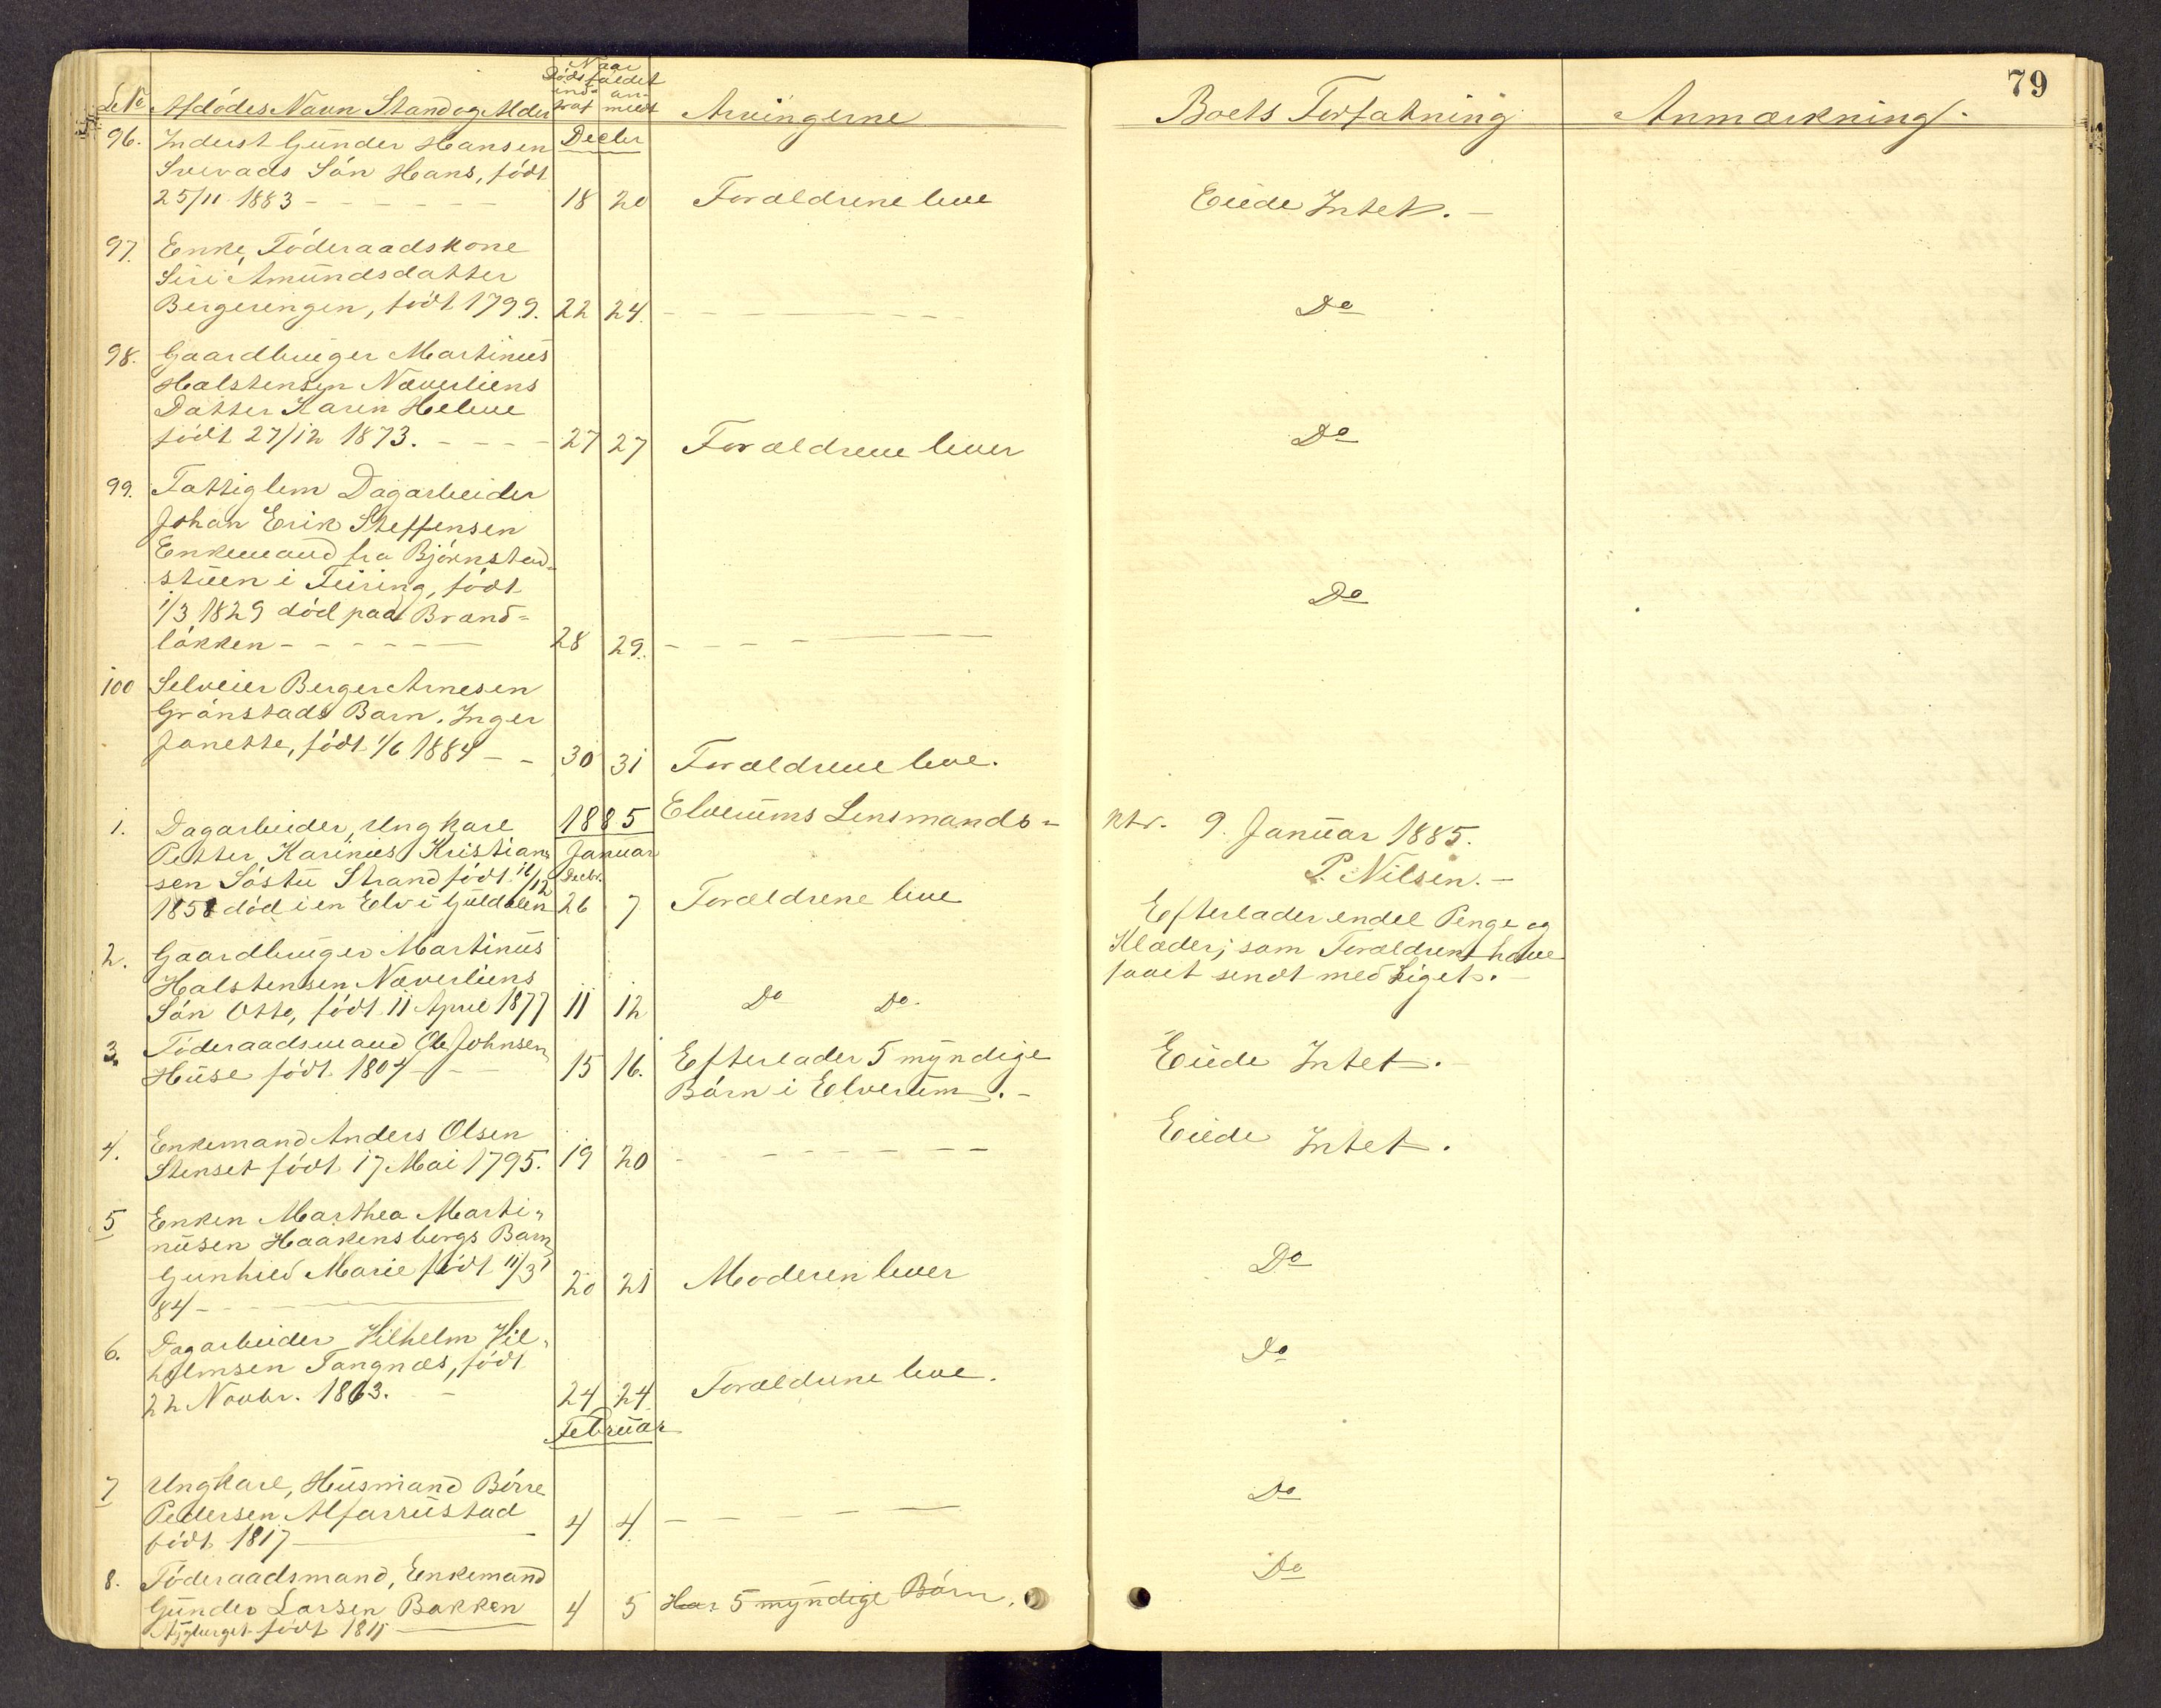 79
Naar
Dødsfaldet
ind- an-
LNo Afdødes Navn Stand og Alder traf meldt Arvingerne Boets Forfatning Anmærkning.
96. Inderst Gunder Hansen Decbr
Søn Hans, født
25/11 1883 - - - - - - 18 20 Forældrene leve Eiede Intet. -
97. Enke, Føderaadskone
Siri Amundsdatter
Bergeringen, født 1799. 22 24. - - - - - - - - Do
98. Gaardbruger Martinus
Halstensen Næverliens
Datter Karen Helene
født 27/12 1873. - - - - 27 27 Forældrene lever Do
99. Fattiglem Dagarbeider
Johan Erik Steffensen
Enkemand fra Bjørnstad-
stuen i Feiring, født
1/3 1829 död paa Brænd- Do
løkken - - - - - - 28 29. - - - - -
100 Selveier Berger Arnesen
Grønstads Barn. Inger
Janette, født 1/6 1884 - - 30 31 Forældrene leve.
1885 Elverums Lensmands- ktr. 9. Januar 1885.
P. Nilsen. -
1. Dagarbeider, Ungkarl Januar
Petter Karinus Kristian-
sen Søstu Strand født 16/12 Decbr.
1858 død i en Elv i Guldalen 26 7 Forældrene leve Efterlader endel Penge og
Klæder; som Forældrene have
faaet sendt med Liget. -
2. Gaardbruger Martinus
Halstensen Næverliens
Søn Otto, født 11 April 1877 11 12 Do Do.
3. Føderaadsmand Ole Johnsen
Huse født 1804 - - - 15 16. Efterlader 5 myndige Eiede Intet. -
Børn i Elverum. -
4. Enkemand Anders Olsen
Stenset født 17 Mai 1795. 19 20 - - - - - - - - Eiede Intet.
5 Enken Marthea Marti-
nusen Haakensbergs Barn
Gunhild Marie født 11/3 20 21 Moderen lever Do
84 - - -
6. Dagarbeider Vilhelm Vil-
helmsen Tangnæs, født
22 Novbr. 1863. - 24 24 Forældrene leve. Do
Februar
7 Ungkarl, Husmand Børre
Pedersen Alfarrustad
født 1817 - 4 4. - - - - - Do
8. Føderaadsmand, Enkemand
Gunder Larsen Bakken 4 5 Har 5 myndige Børn. Do
født 1811